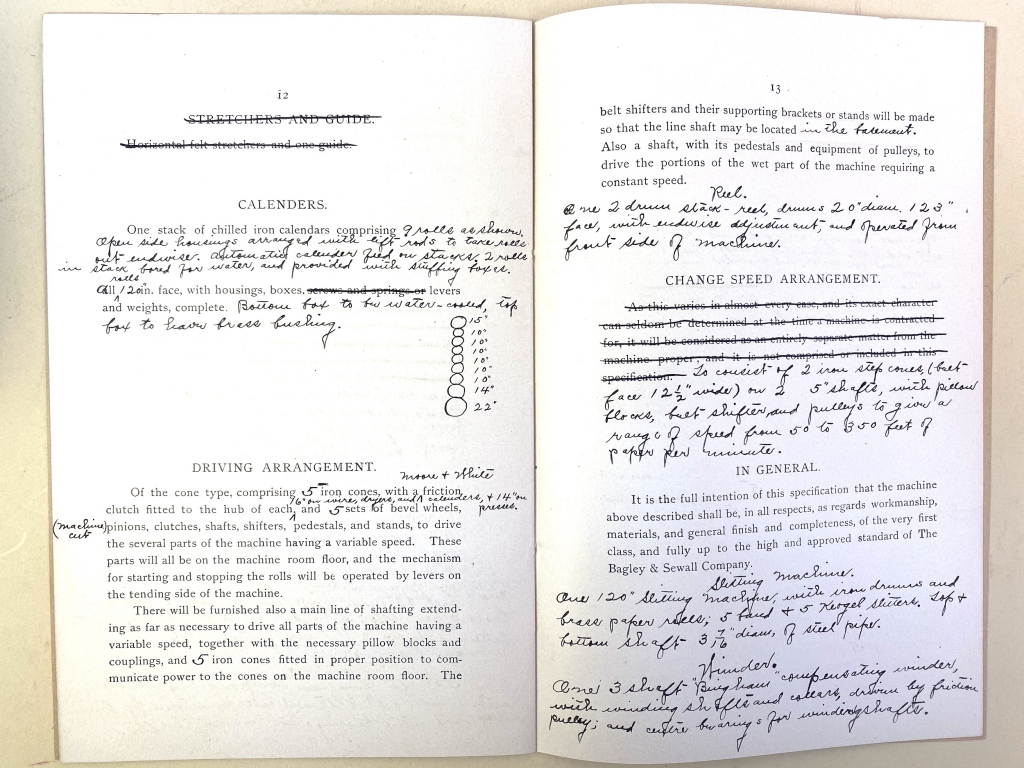 12
STRETCHERS AND GUIDE.
Horizontal felt stretchers and one guide.
CALENDERS.
One stack of chilled iron calendars comprising 9 rolls as shown.
Open side housings arranged with lift rods to take rolls
out endwise. Automatic calender feed on stacks; 2 rolls
in stack bored for water, and provided with stuffing boxes.
rolls
All 120in. face, with housings, boxes, screws and springs or levers
and weights, complete. Bottom box to be water-cooled, top
box to have brass bushing.
15"
10"
10"
10"
10"
10"
10"
14"
22"
DRIVING ARRANGEMENT.
Moore & White
Of the cone type, comprising 5 iron cones, with a friction
16" on wire, dryers, and calenders, & 14" on
clutch fitted to the hub of each, and 5 sets of bevel wheels, presses.
(machine cut) pinions, clutches, shafts, shifters, pedestals, and stands, to drive
the several parts of the machine having a variable speed. These
parts will all be on the machine room floor, and the mechanism
for starting and stopping the rolls will be operated by levers on
the tending side of the machine.
There will be furnished also a main line of shafting extend-
ing as far as necessary to drive all parts of the machine having a
variable speed, together with the necessary pillow blocks and
couplings, and 5 iron cones fitted in proper position to com-
municate power to the cones on the machine room floor. The
13
belt shifters and their supporting brackets or stands will be made
so that the line shaft may be located in the basement.
Also a shaft, with its pedestals and equipment of pulleys, to
drive the portions of the wet part of the machine requiring a
constant speed.
Reel.
One 2 drum stack-reel, drums 20" diam. 123"
face, with endwise adjustment, and operated from
front side of machine.
CHANGE SPEED ARRANGEMENT.
As this varies in almost every case, and its exact character
can seldom be determined at the time a machine is contracted
for, it will be considered as an entirely separate matter from the
machine proper, and it is not comprised or included in this
specification. To consist of 2 iron step cones, (belt-
face 12 1/2" wide) on 2 5" shafts, with pillow
blocks, belt shifter, and pulleys to give a
range of speed from 50 to 350 feet of
paper per minute.
IN GENERAL.
It is the full intention of this specification that the machine
above described shall be, in all respects, as regards workmanship,
materials, and general finish and completeness, of the very first
class, and fully up to the high and approved standard of The
Bagley & Sewall Company.
Slitting Machine.
One 120" Slitting Machine, with iron drums and
brass paper rolls; 5 band & 5 Kergel slitters. Top &
bottom shaft 3 7/16" diam, of steel pipe.
Winder.
One 3 shaft "Bingham" compensating winder,
with winding shafts and collars, driven by friction
pulley; and centre bearings for winding shafts.